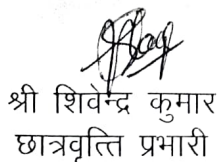 श्री शिवेन्द्र कुमार
छात्रवृत्ति प्रभारी